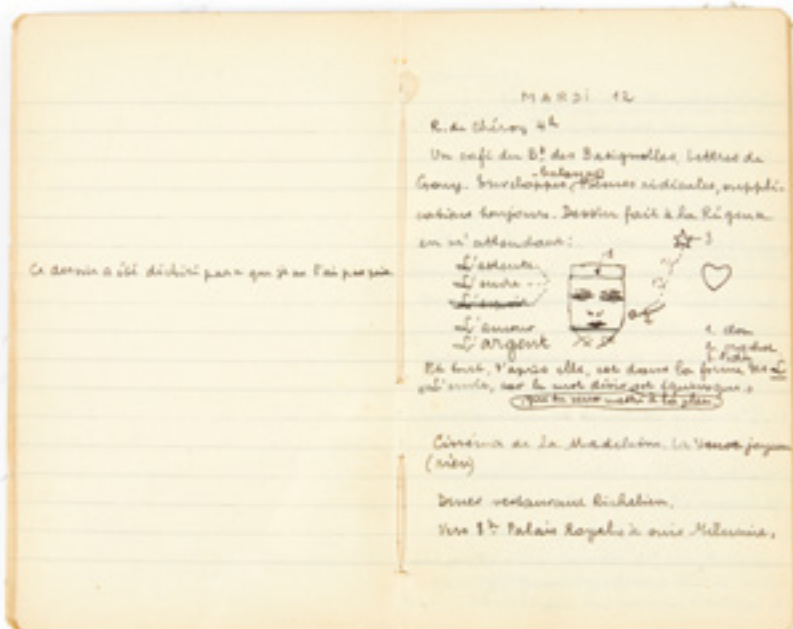 Ce dessin a été déchiré parce que je ne l'ai pas pris
MARDI 12
R. de Chéroy 4h
Un café du Bd des Batignolles. Lettres de
Gouy. Enveloppes, Poèmes ridicules, suppli-
cations toujours. Dessin fait à la Régence
en m'attendant :
L'attente
L'envie
L'amour
L'argent
1
2
3
Et tout, d'après elle, est dans la forme des L
L'envie, car le mot désir est équivoque.
Cinéma de La Madeleine. La Veuve joyeuse
(rien)
Dîner restaurant Richelieu.
Vers 8h Palais Royal